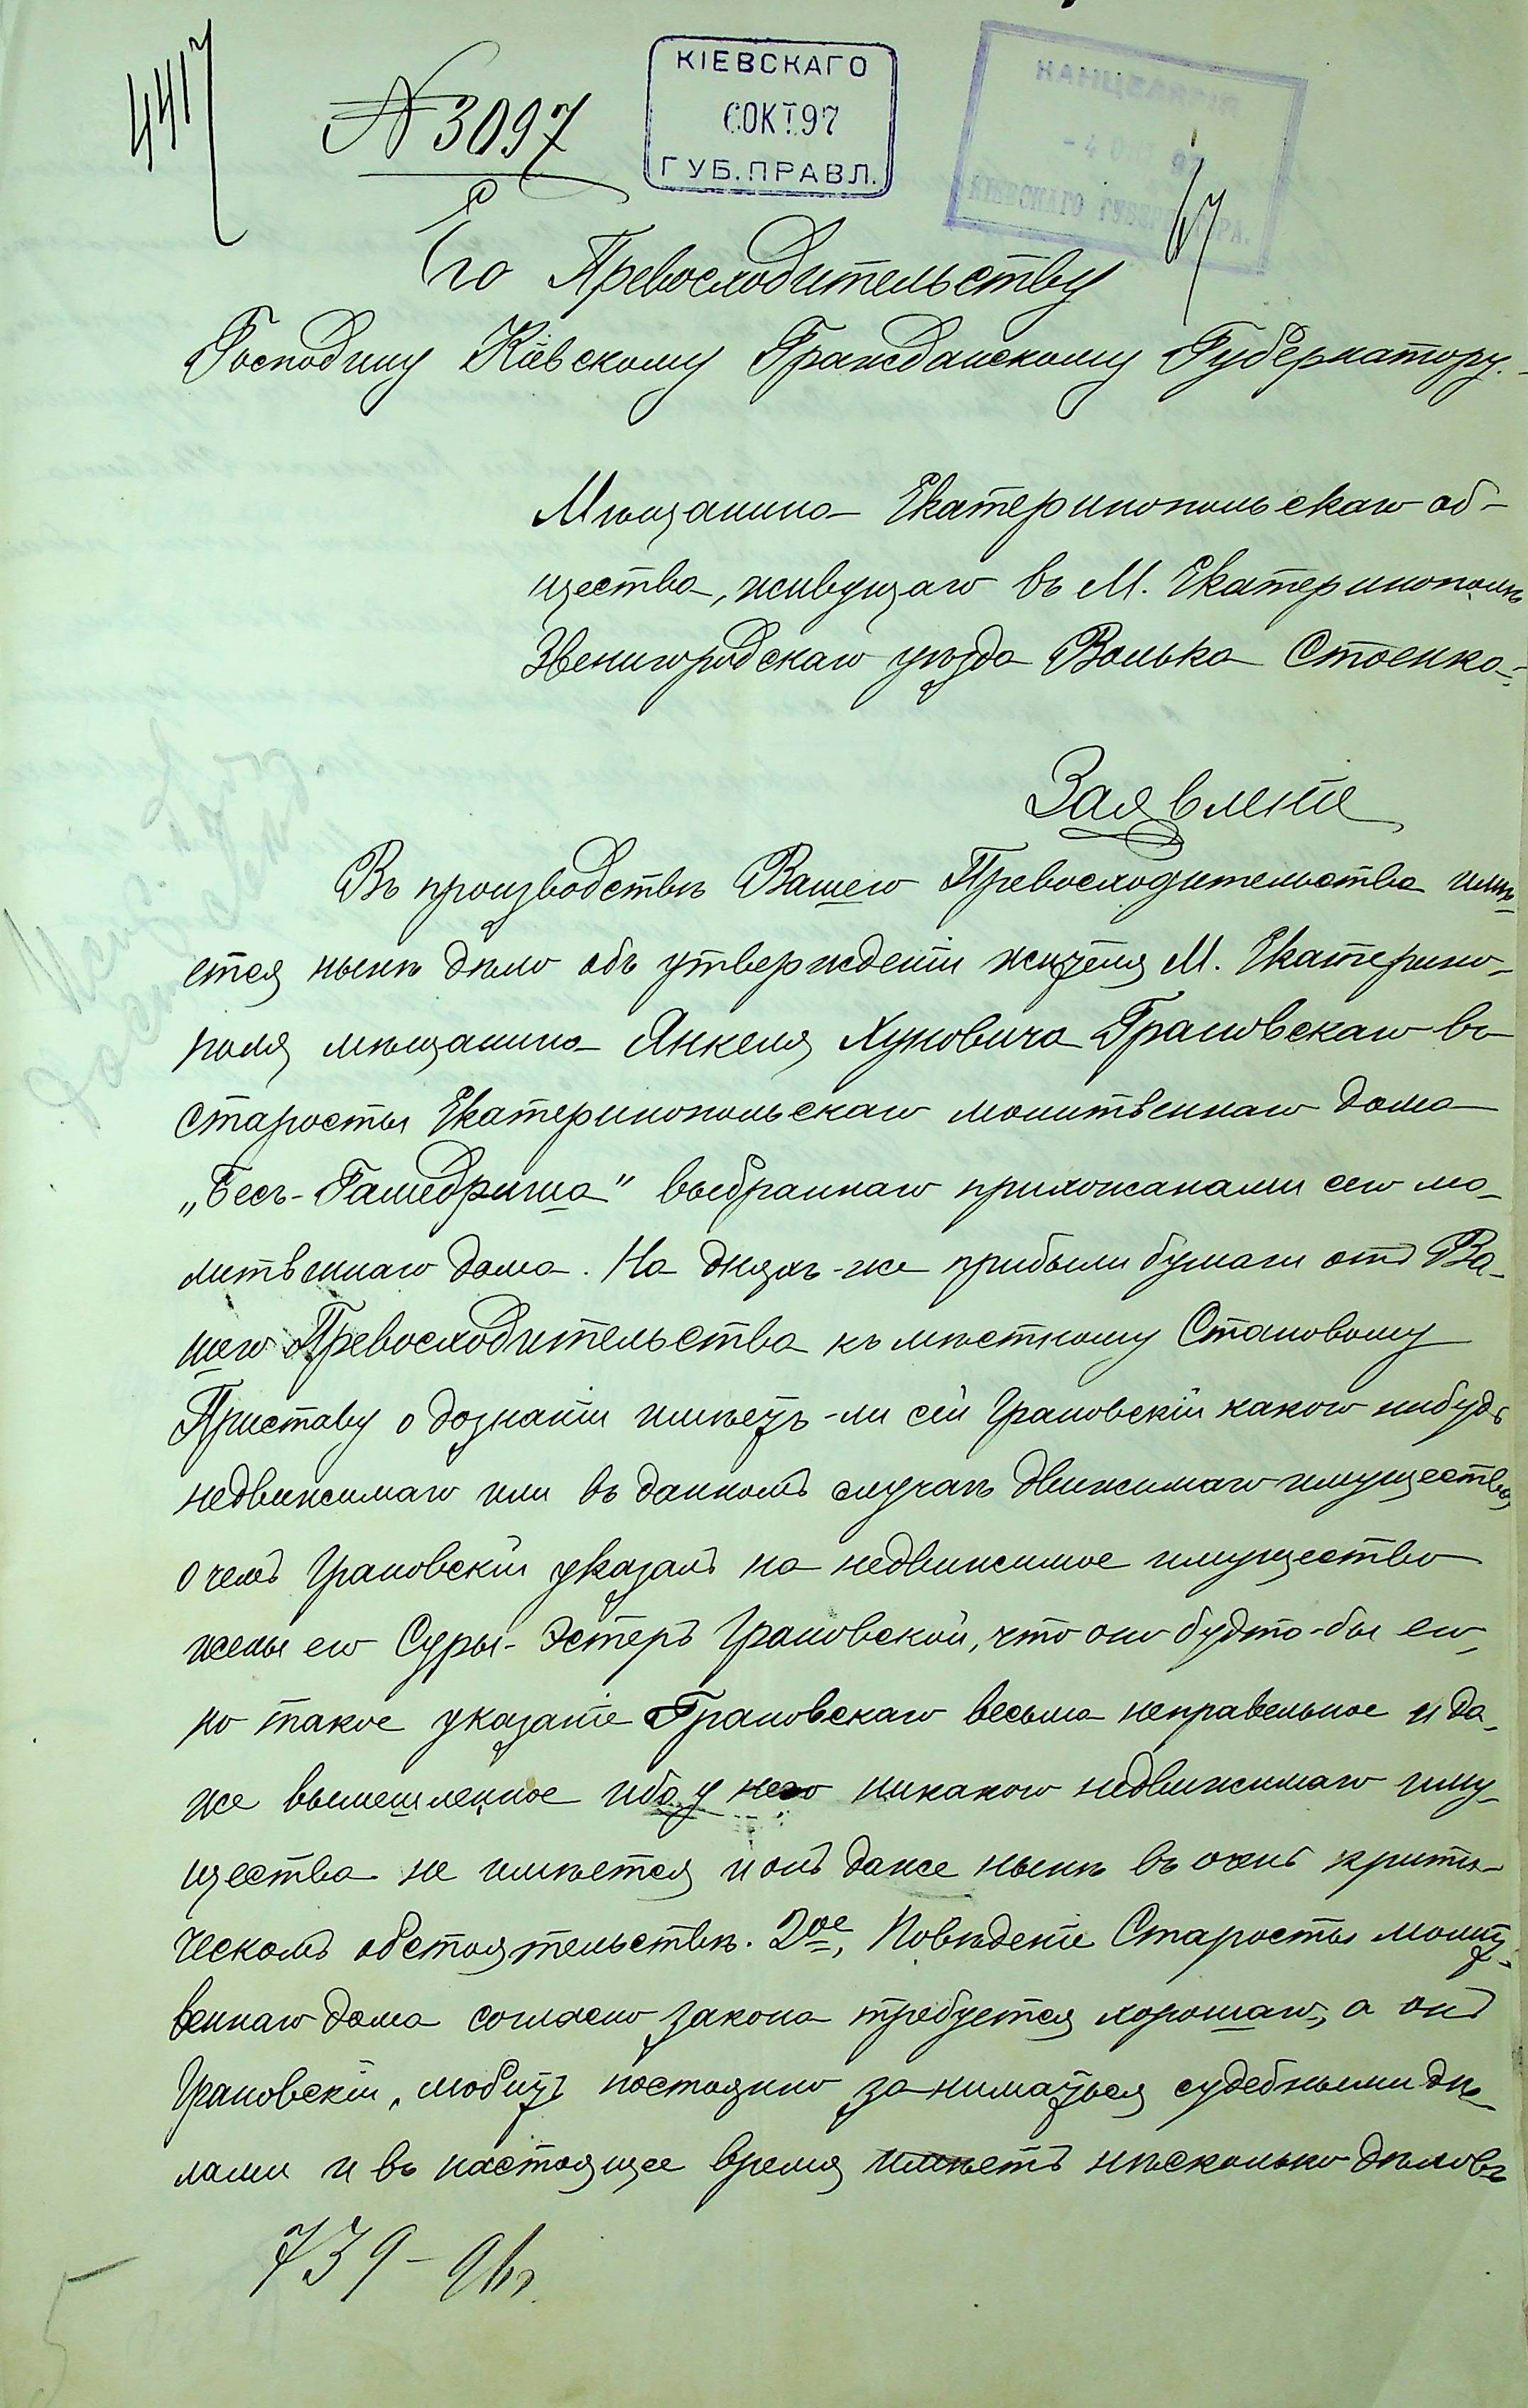 4417
№ 3097
КІЕВСКАГО
6 ОКТ. 97
ГУБ. ПРАВЛ.
КАНЦЕЛЯРІЯ
- 4 ОКТ 97
КІЕВСКАГО ГУБЕРНАТОРА.
67
Его Превосходительству
Господину Кіевскому Гражданскому Губернатору.
Мѣщанина Екатеринопольскаго об-
щества, живущаго въ М. Екатеринополѣ
Звенигородскаго уѣзда Волька Стоенко-
Заявленіе
Въ производствѣ Вашего Превосходительства имѣ-
ется нынѣ дѣло объ утвержденіи жителя М. Екатерино-
поля мѣщанина Янкеля Хуновича Грановскаго въ
старосты Екатеринопольскаго молитвеннаго дома
„Бесъ-Гамедриша" выбраннаго прихожанами сего мо-
литвеннаго дома. На дняхъ-же прибыли бумаги отъ Ва-
шего Превосходительства къ мѣстному Становому
Приставу о дознаніи имѣетъ-ли сей Грановскій какого нибудь
недвижимаго или въ данномъ случаѣ движимаго имущества,
о чемъ Грановскій указалъ на недвижимое имущество
жены его Суры-Эстеръ Грановской, что оно будто-бы его,
но такое указаніе Грановскаго весьма неправельное и да-
же вымешленное ибо у него никакого недвижимаго иму-
щества не имѣется и онъ даже нынѣ въ очень крити-
ческомъ обстоятельствѣ. 2ое, Повѣденіе Старосты молит-
веннаго дома согласно закона требуется хорошаго, а онъ
Грановскій, любитъ постоянно заниматься судебными дѣ-
лами и въ настоящее время имѣетъ нѣсколько дѣловъ
739-96 г.
5